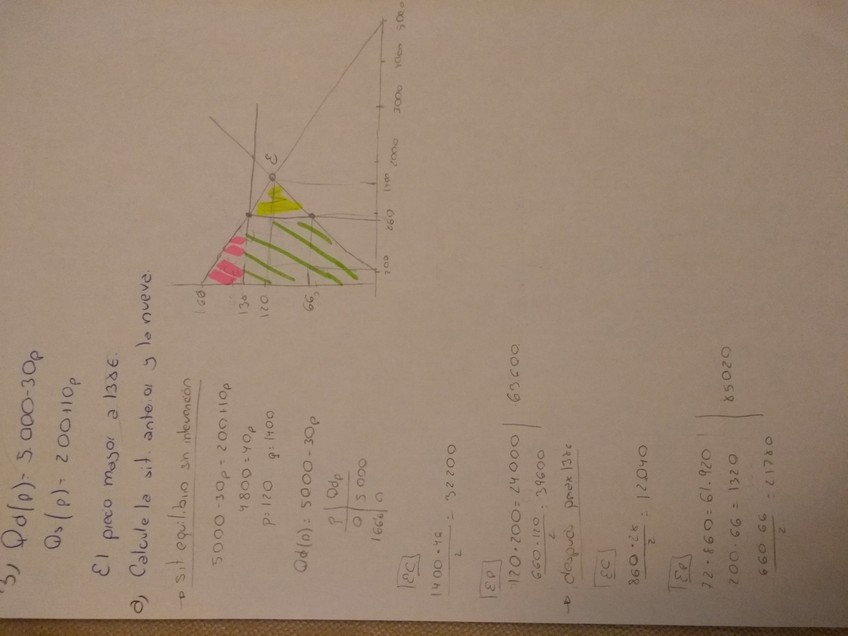 3) Qd(p) = 5.000-30p
Qs(p) = 200+10p
El precio mayor a 138€.
a) Calcule la sit. anterior y la nueva.
→ sit equilibrio sin intervención
5000-30p = 200+10p
4800 = 40p
p=120 q=1400
Qd(p) = 5000-30p
p | Qdp
0 | 5000
166'6 | 0
EC
= 32200
2
EP
120·200 = 24000
= 39600
2
63.600
→ después pmax 138€
EC
= 12040
2
EP
72·860 = 61.920
200·66 = 1320
660·66 = 21780
2
85020
130
120
66
E
200
860
1400
2000
3000
4000
5000